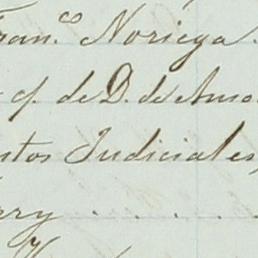 Fran.co Noriega.
q. de D. de Amo
ntos Judiciales,
rry . . . . .